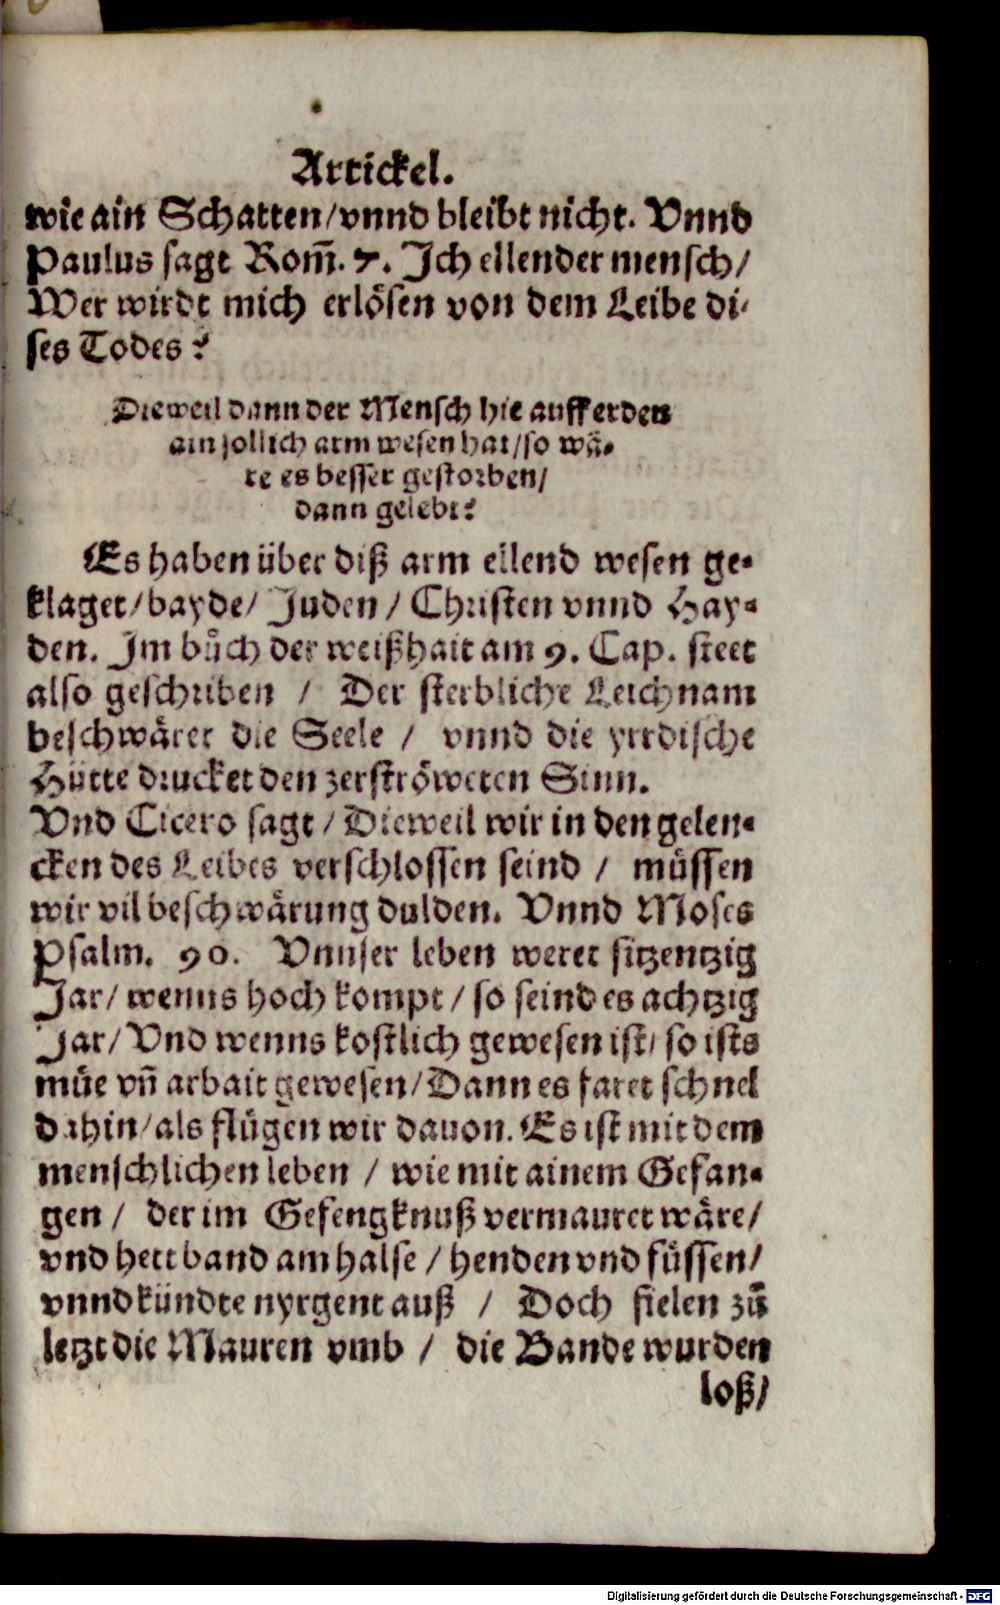 Artickel.
wie ain Schatten/vnnd bleibt nicht. Vnnd
Paulus sagt Rom̃. 7. Jch ellender mensch/
Wer wirdt mich erlösen von dem Leibe di-
ses Todes?
Dieweil dann der Mensch hie auff erden
ain sollich arm wesen hat/so wå-
re es besser gestorben/
dann gelebt?
Es haben über diß arm ellend wesen ge-
klaget/bayde/ Juden / Christen vnnd Hay-
den. Jm bůch der weißhait am 9. Cap. steet
also geschriben / Der sterbliche Leichnam
beschwäret die Seele / vnnd die yrrdische
Hütte drucket den zerströweten Sinn.
Vnd Cicero sagt / Dieweil wir in den gelen-
cken des Leibes verschlossen seind / müssen
wir vil beschwärung dulden. Vnnd Moses
Psalm. 90. Vnnser leben weret sitzentzig
Jar/ wenns hoch kompt / so seind es achtzig
Jar/ Vnd wenns kostlich gewesen ist/ so ists
müe vñ arbait gewesen/Dann es faret schnel
dahin/als flügen wir dauon. Es ist mit dem
menschlichen leben / wie mit ainem Gefan-
gen / der im Gefengknuß vermauret wäre/
vnd hett band am halse / henden vnd füssen/
vnnd kündte nyrgent auß / Doch fielen zů
letzt die Mauren vmb / die Bande wurden
loß/
Digitalisierung gefördert durch die Deutsche Forschungsgemeinschaft - DFG